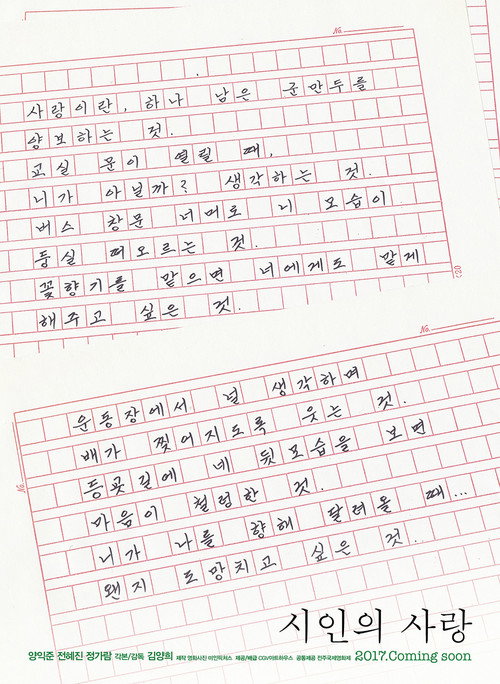 No.
사랑이란, 하나 남은 군만두를
양보하는 것.
교실 문이 열릴 때,
니가 아닐까? 생각하는 것.
버스 창문 너머로 니 모습이
둥실 떠오르는 것.
꽃향기를 맡으면 너에게도 맡게
해주고 싶은 것.
No.
운동장에서 널 생각하며
배가 찢어지도록 웃는 것.
등굣길에 네 뒷모습을 보면
마음이 철렁한 것.
니가 나를 향해 달려올 때...
왠지 도망치고 싶은 것.
No.
시인의 사랑
양익준 전혜진 정가람 각본/감독 김양희 제작 영화사진 미인픽쳐스 제공/배급 CGV아트하우스 공동제공 전주국제영화제 2017.Coming soon